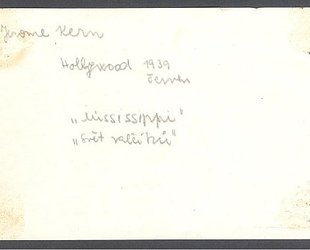 Jerome Kern
Hollywood 1939
červen
„Mississippi"
„Svět valčíků"